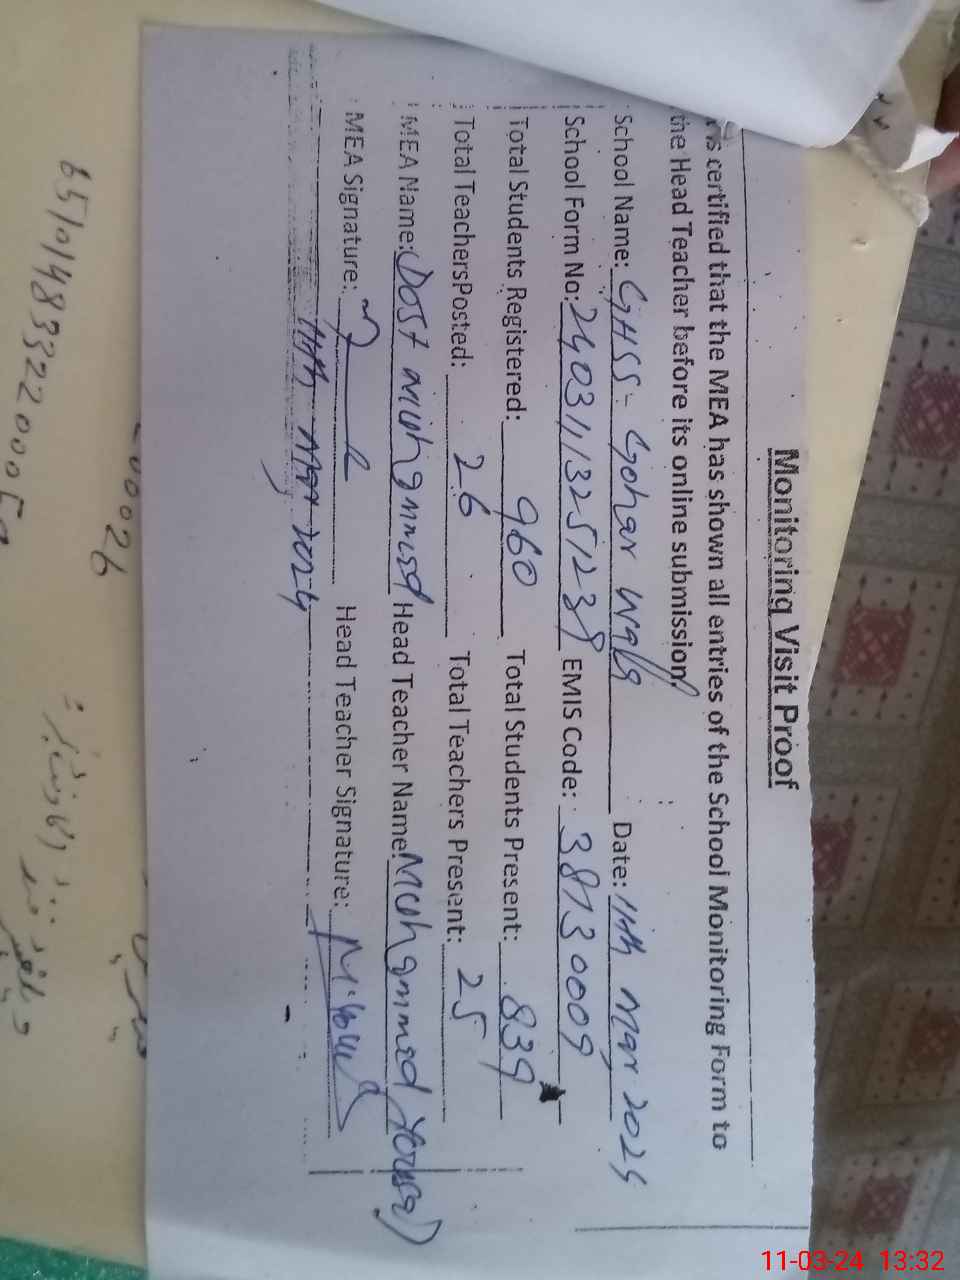 Monitoring Visit Proof
is certified that the MEA has shown all entries of the School Monitoring Form to
the Head Teacher before its online submission.
School Name: GHSS- Gohar Wala Date: 11th Mar 2024
School Form No: EMIS Code: 38130009
Total Students Registered: 960 Total Students Present: 839
Total TeachersPosted: 26 Total Teachers Present: 25
MEA Name: Dost Muhammad Head Teacher Name: Muhammad Yousaf
MEA Signature: Head Teacher Signature:
11th Mar 2024
00026
11-03-24 13:32